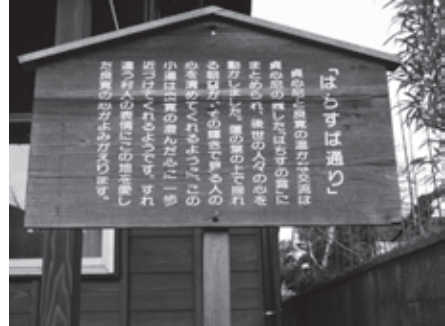 「はちすば通り」
貞心尼と良寛の温かな交流は
貞心尼の残した「はちすの露」に
まとめられ、後世の人々の心を
動かしました。蓮の葉の上で揺れ
る朝露が、その輝きで見る人の
心を清めてくれるように、この
小道は良寛の澄んだ心に一歩
近づけてくれるようです。すれ
違う村人の表情にこの地を愛し
た良寛の心がよみがえります。